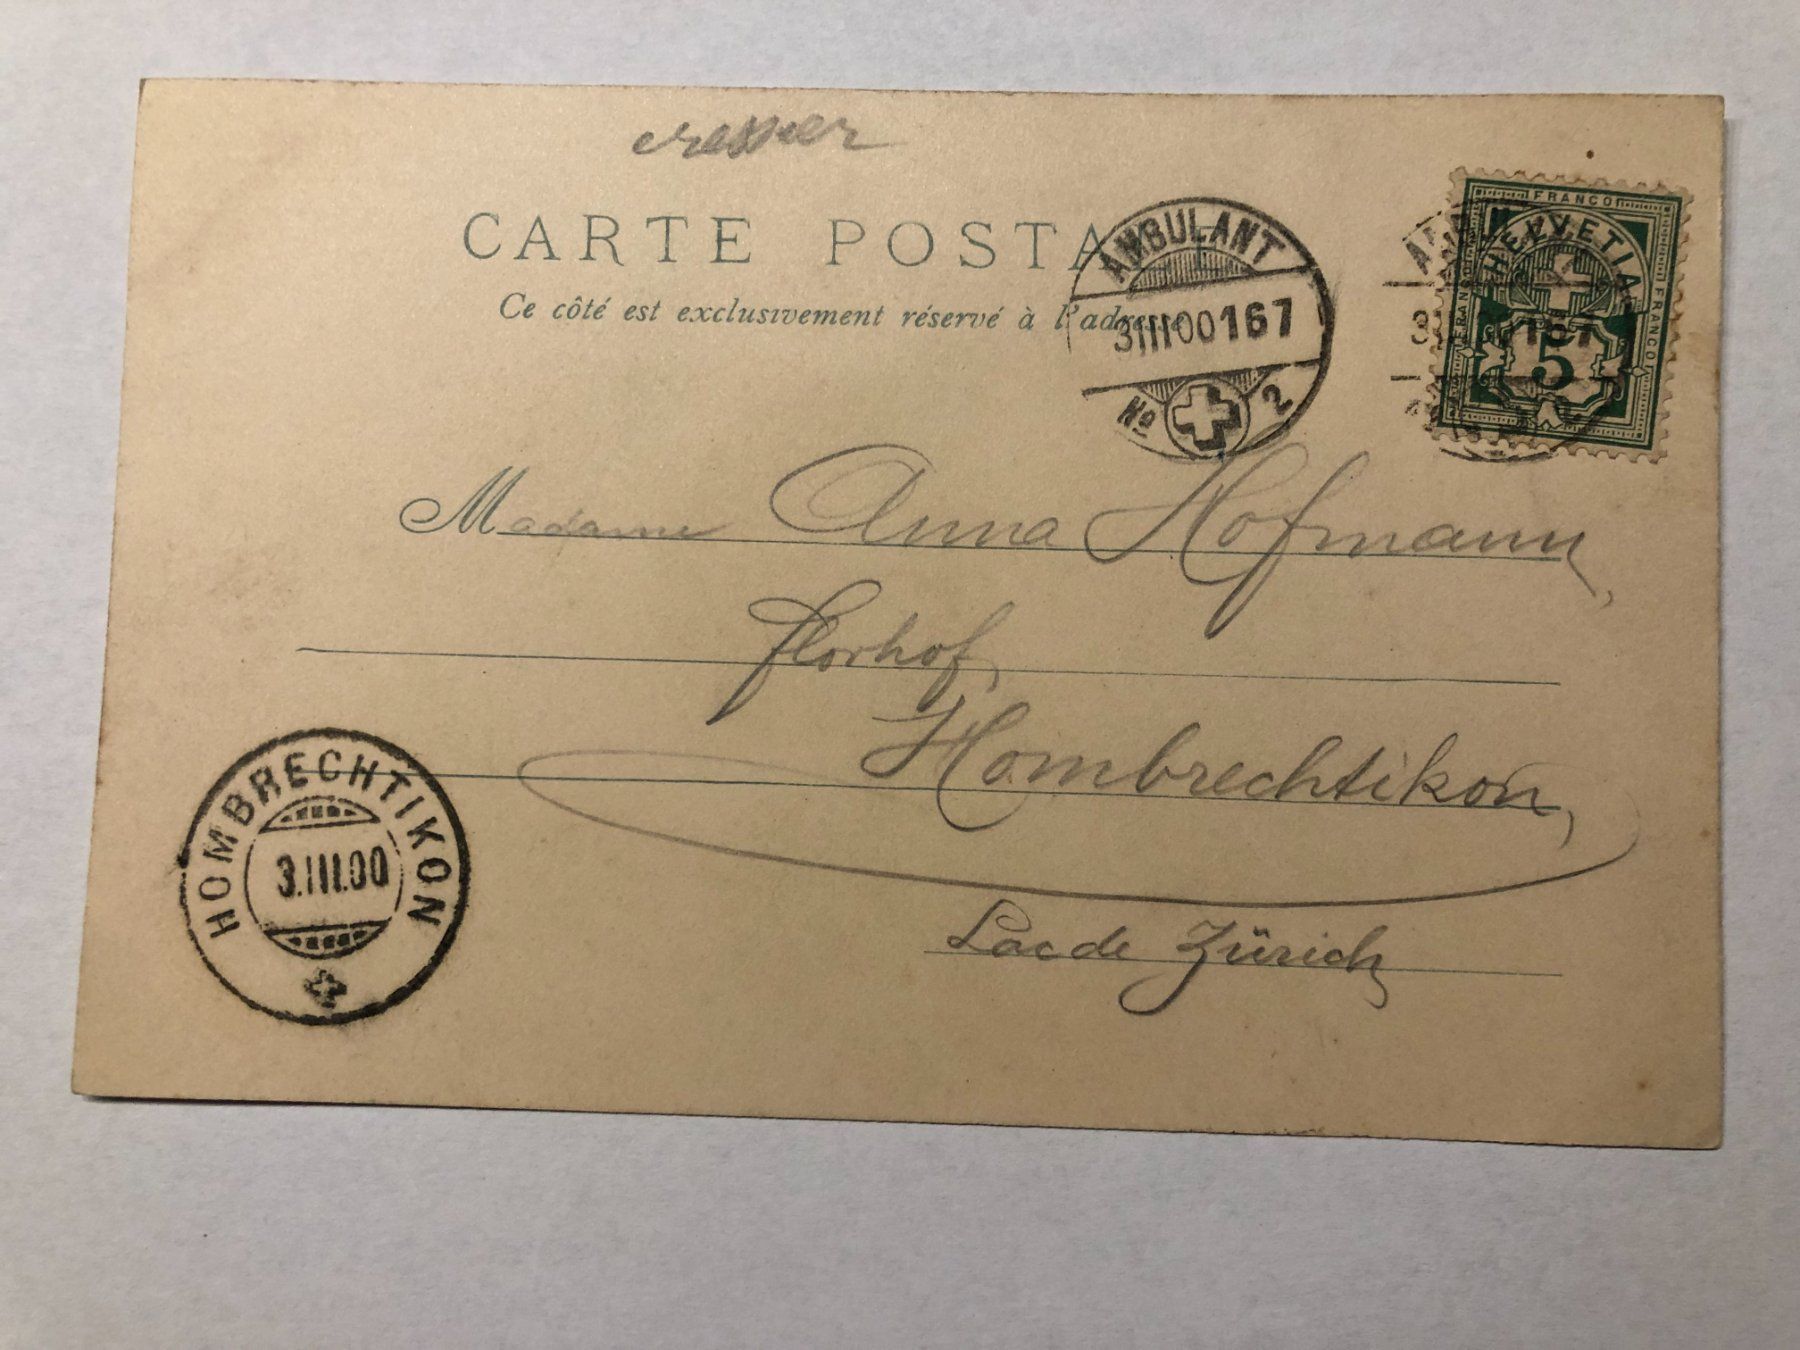 cressier
CARTE POSTALE
Ce côté est exclusivement réservé à l'adresse
AMBULANT
3 III 00 167
No 2
FRANCO
HELVETIA
FRANCO
FRANCO
5
Madame Anna Hofmann,
Florhof,
Hombrechtikon,
Lac de Zürich
HOMBRECHTIKON
3.III.00